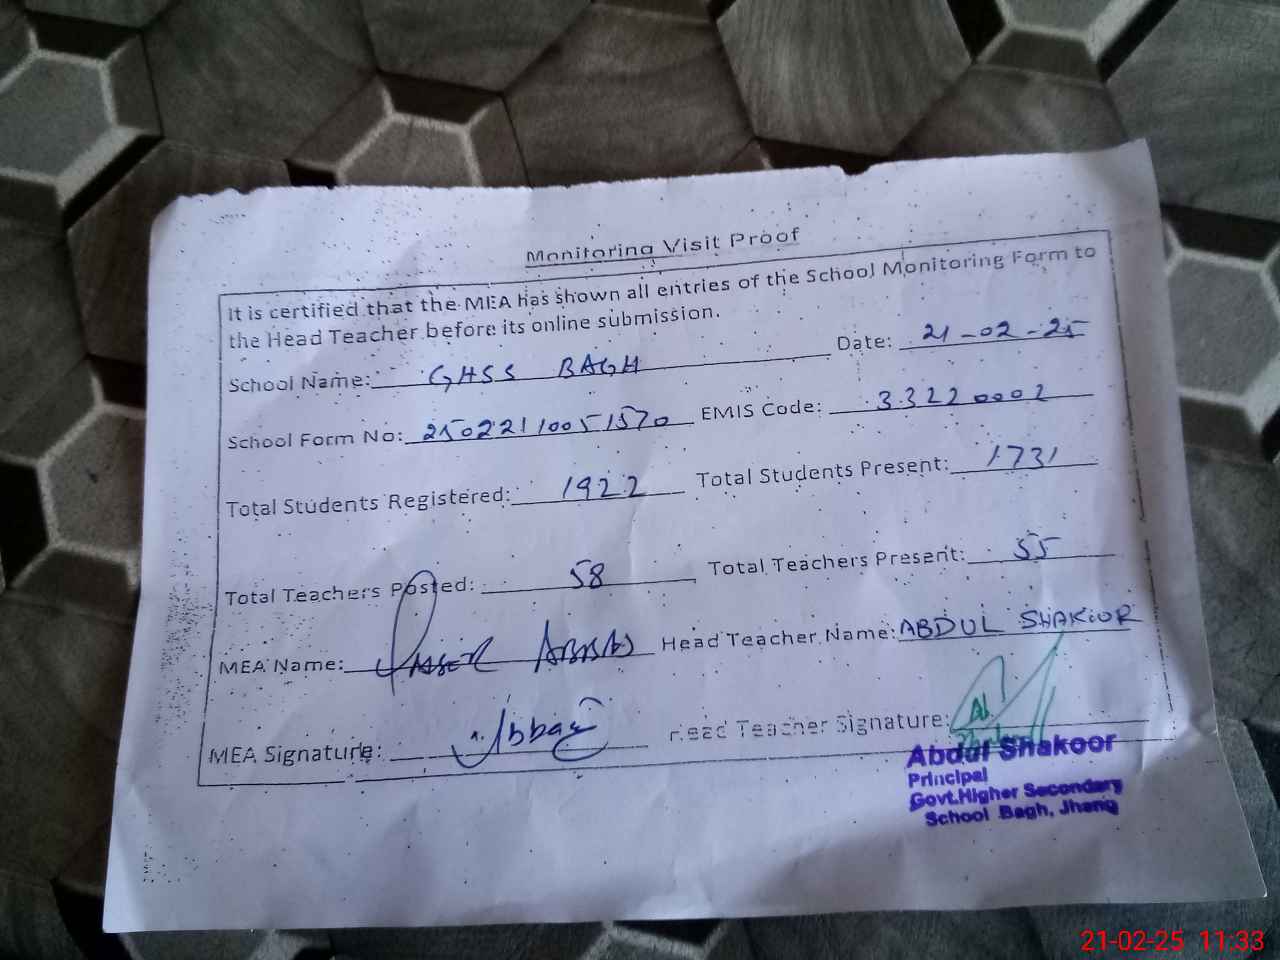 Monitoring Visit Proof
It is certified that the MEA has shown all entries of the School Monitoring Form to
the Head Teacher before its online submission.
School Name: GHSS BAGH Date: 21-02-25
School Form No: 25022110051570 EMIS Code: 33220002
Total Students Registered: 1922 Total Students Present: 1731
Total Teachers Posted: 58 Total Teachers Present: 55
MEA Name: Head Teacher Name: ABDUL SHAKOOR
MEA Signature: Abbas Head Teacher Signature:
Abdul Shakoor
Principal
Govt.Higher Secondary
School Bagh, Jhang
21-02-25 11:33